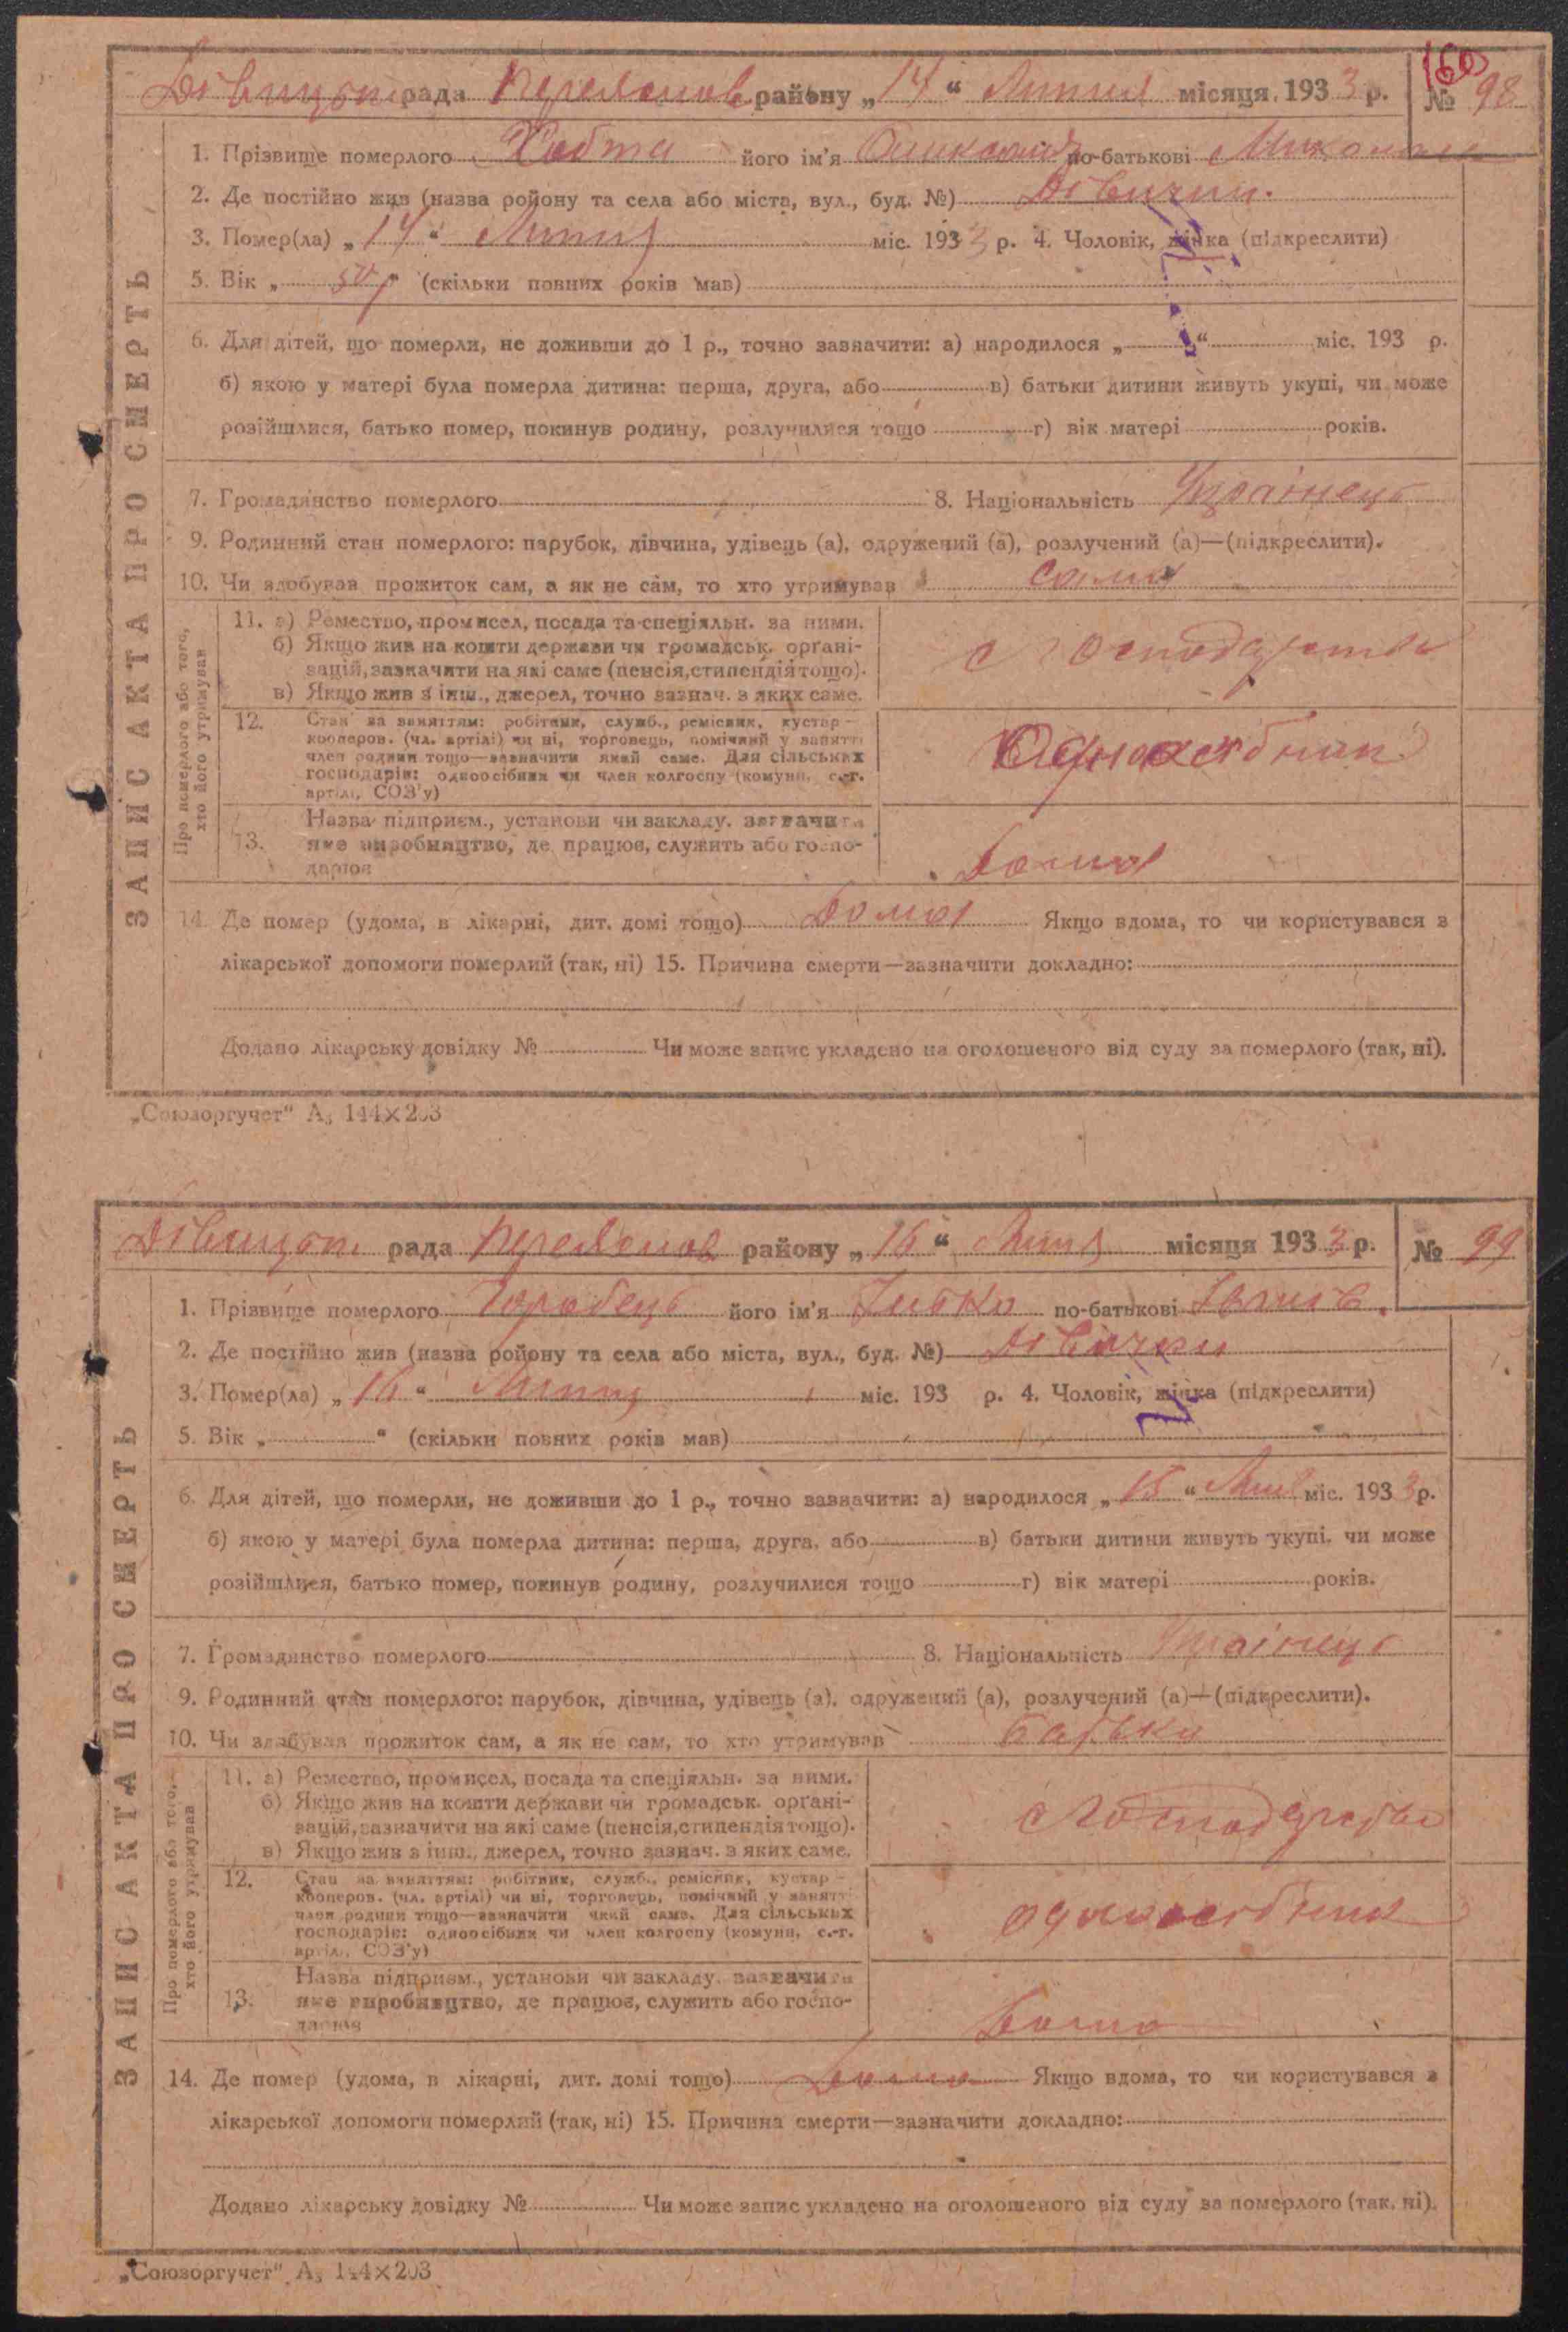 рада районуﾠ„14“ Липня місяця 1933 р. № 98
160
1. Прізвище померлого його ім'я по-батькові
2. Де постійно жив (назва ройону та села або міста, вул., буд. №) Дівички
3. Помер(ла) „14“ Липня міс. 1933 р. 4. Чоловік, жінка (підкреслити)
5. Вік „ “ (скільки повних років мав)
6. Для дітей, що померли, не доживши до 1 р., точно зазначити: а) народилося „ “ міс. 193 р.
б) якою у матері була померла дитина: перша, друга, або в) батьки дитини живуть укупі, чи може
розійшлися, батько помер, покинув родину, розлучилися тощо г) вік матері років.
7. Громадянство померлого 8. Національність Українець
9. Родинний стан померлого: парубок, дівчина, удівець (а), одружений (а), розлучений (а)—(підкреслити).
10. Чи здобував прожиток сам, а як не сам, то хто утримував сама
ЗАПИС АКТА ПРО СМЕРТЬ
Про померлого або того,
хто його утримував
11. а) Ремество, промисел, посада та спеціяльн. за ними.
б) Якщо жив на кошти держави чи громадськ. орґані-
зацій, зазначити на які саме (пенсія, стипендія тощо).
в) Якщо жив з інш., джерел, точно зазнач. з яких саме.
с господарства
12. Стан за заняттям: робітник, служб., ремісник, кустар -
кооперов. (чл. артілі) чи ні, торговець, помічний у занятті
член родини тощо—зазначити який саме. Для сільських
господарів: одноосібник чи член колгоспу (комуни, с.-г.
артілі, СОЗ'у)
Одноосібник
13. Назва підприєм., установи чи закладу. зазначити
яке виробництво, де працює, служить або госпо-
дарює
Дома
14. Де помер (удома, в лікарні, дит. домі тощо) Дома Якщо вдома, то чи користувався з
лікарської допомоги померлий (так, ні) 15. Причина смерти—зазначити докладно:
Додано лікарську довідку № Чи може запис укладено на оголошеного від суду за померлого (так, ні).
„Союзоргучет“ А₅ 144×203
рада району „16“ Липня місяця 1933 р. № 99
1. Прізвище померлого Горобець його ім'я по-батькові Іванів
2. Де постійно жив (назва ройону та села або міста, вул., буд. №) Дівички
3. Помер(ла) „16“ Липня міс. 193 р. 4. Чоловік, жінка (підкреслити)
5. Вік „ “ (скільки повних років мав)
6. Для дітей, що померли, не доживши до 1 р., точно зазначити: а) народилося „15“ міс. 1933 р.
б) якою у матері була померла дитина: перша, друга, або в) батьки дитини живуть укупі, чи може
розійшлися, батько помер, покинув родину, розлучилися тощо г) вік матері років.
7. Громадянство померлого 8. Національність Українець
9. Родинний стан померлого: парубок, дівчина, удівець (а), одружений (а), розлучений (а)—(підкреслити).
10. Чи здобував прожиток сам, а як не сам, то хто утримував батько
ЗАПИС АКТА ПРО СМЕРТЬ
Про померлого або того,
хто його утримував
11. а) Ремество, промисел, посада та спеціяльн. за ними.
б) Якщо жив на кошти держави чи громадськ. орґані-
зацій, зазначити на які саме (пенсія, стипендія тощо).
в) Якщо жив з інш., джерел, точно зазнач. з яких саме.
с господарства
12. Стан за заняттям: робітник, служб., ремісник, кустар -
кооперов. (чл. артілі) чи ні, торговець, помічний у занятті
член родини тощо—зазначити який саме. Для сільських
господарів: одноосібник чи член колгоспу (комуни, с.-г.
артілі, СОЗ'у)
одноосібник
13. Назва підприєм., установи чи закладу. зазначити
яке виробництво, де працює, служить або госпо-
дарює
Дома
14. Де помер (удома, в лікарні, дит. домі тощо) Дома Якщо вдома, то чи користувався з
лікарської допомоги померлий (так, ні) 15. Причина смерти—зазначити докладно:
Додано лікарську довідку № Чи може запис укладено на оголошеного від суду за померлого (так, ні).
„Союзоргучет“ А₅ 144×203